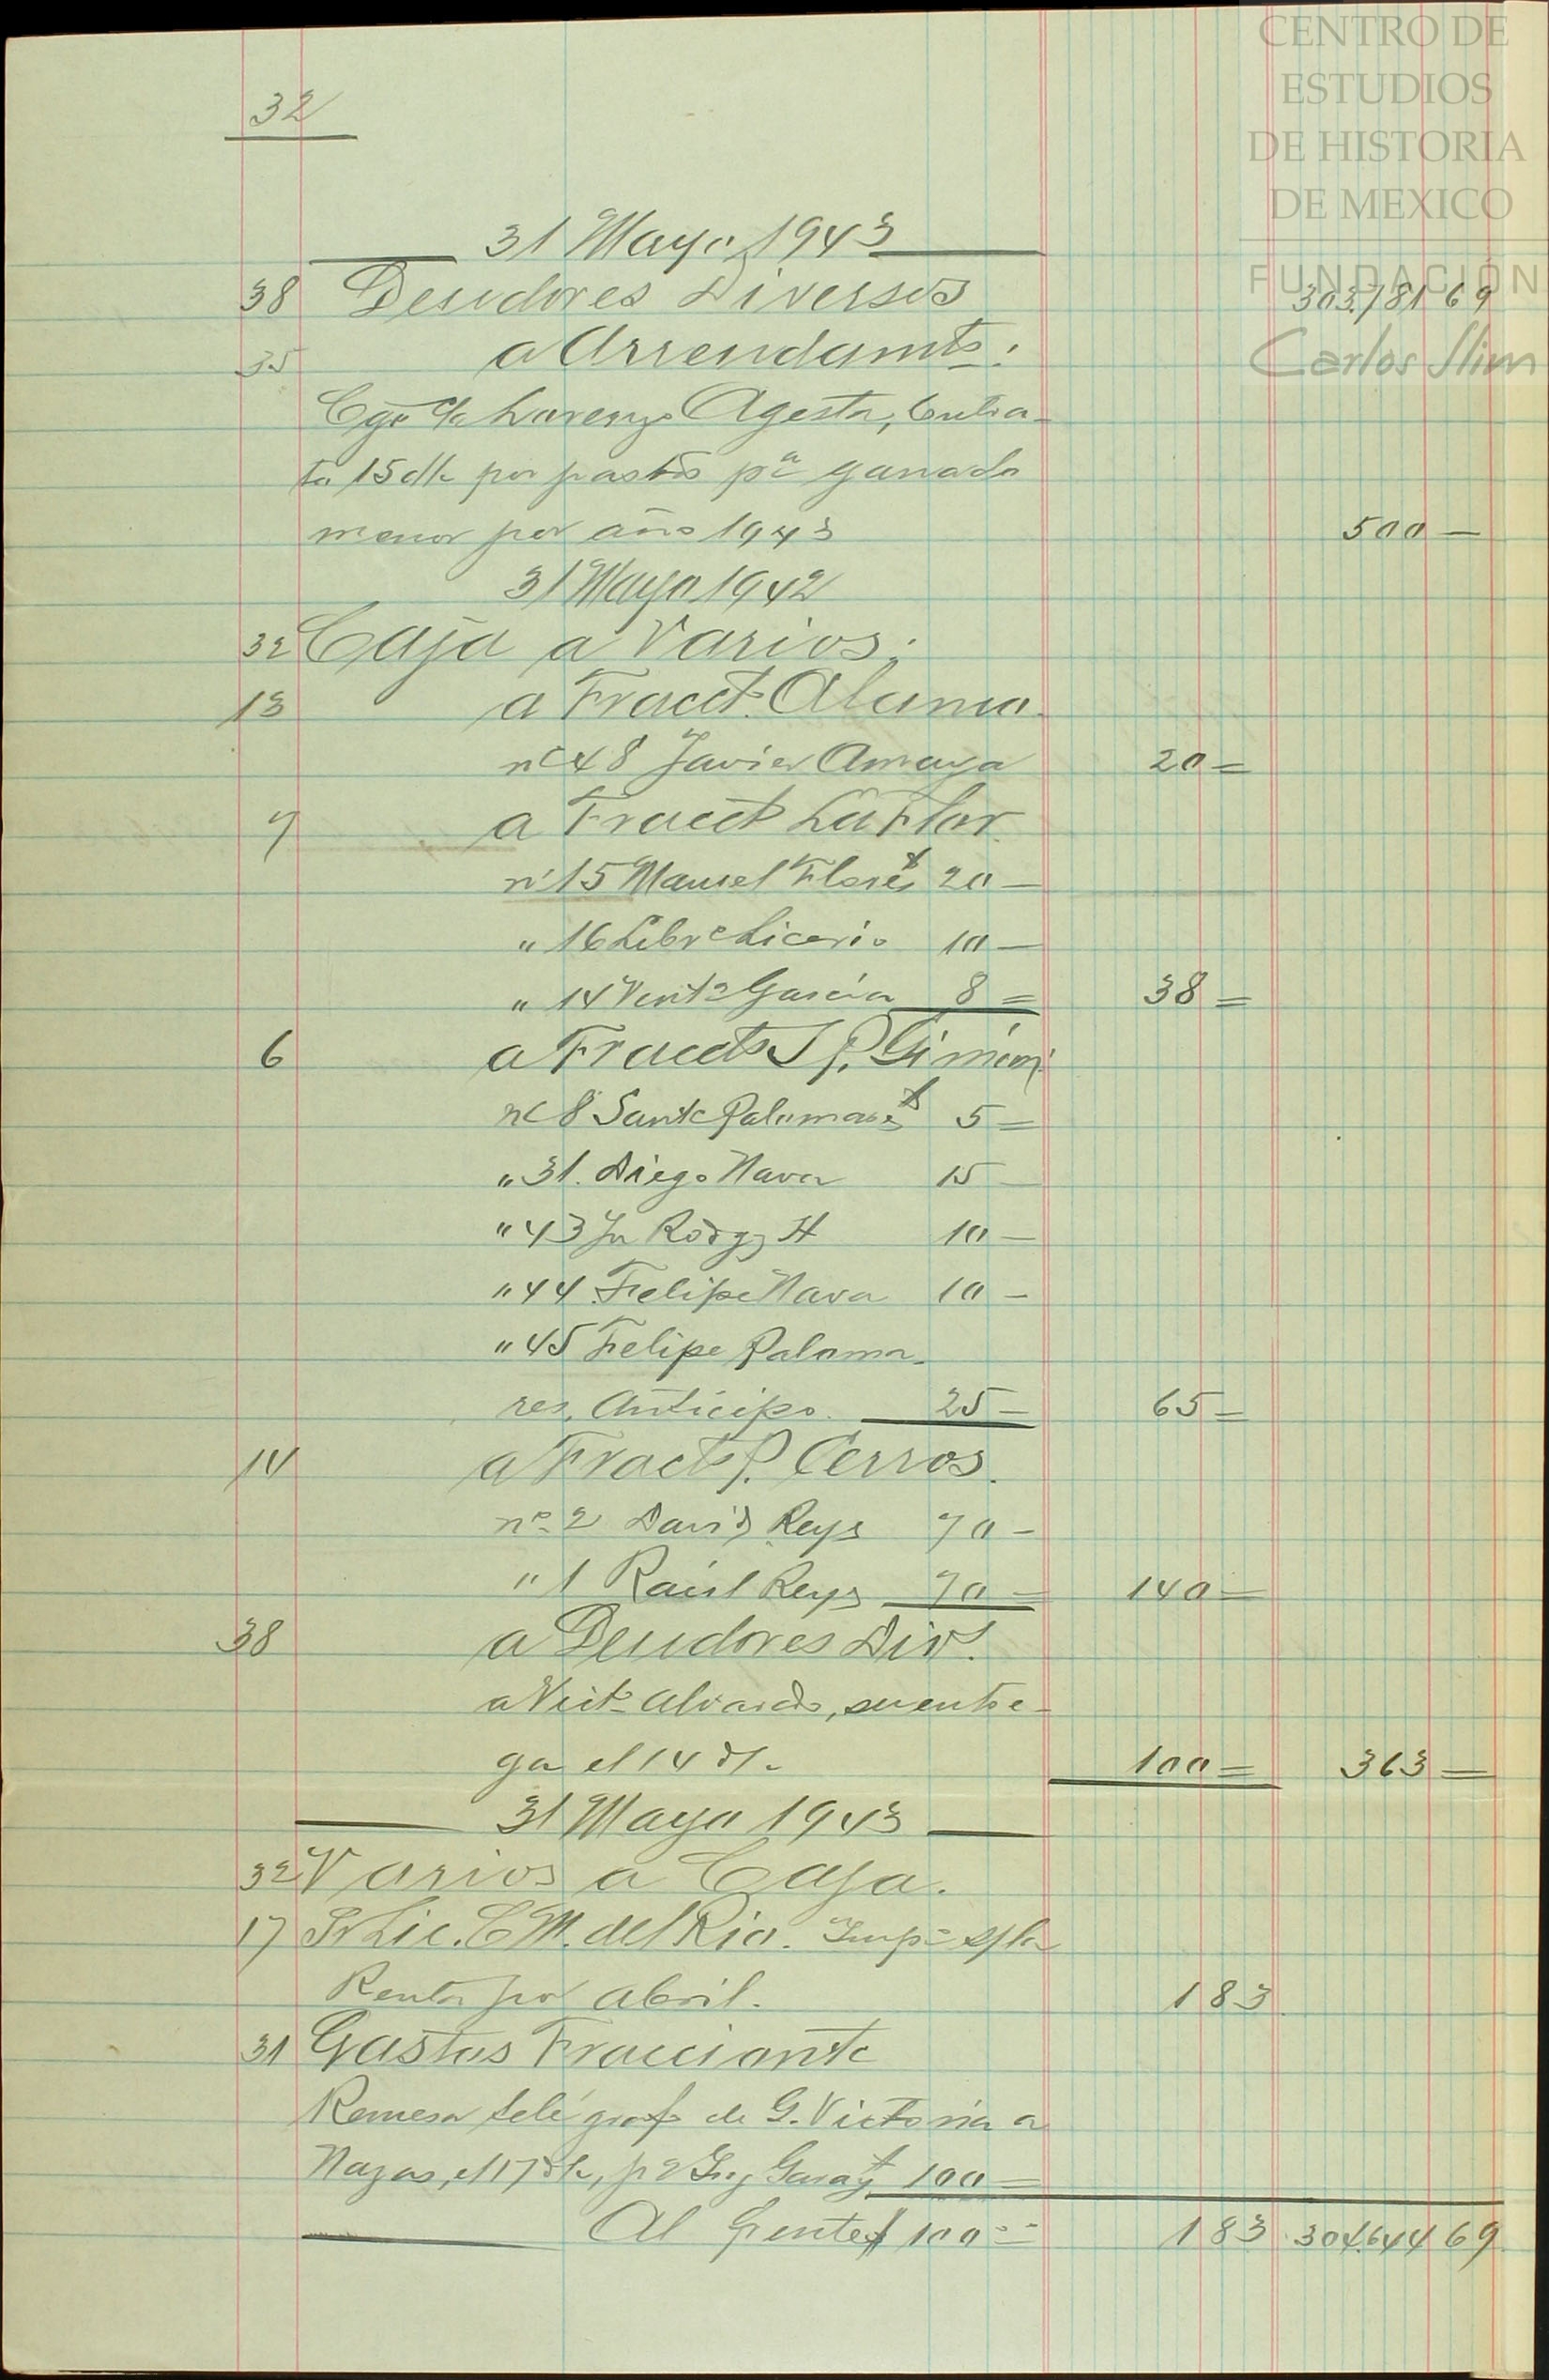 CENTRO DE
ESTUDIOS
DE HISTORIA
DE MEXICO
FUNDACIÓN
Carlos Slim
32
31 Mayo 1943
38 Deudores Diversos 303.781 69
35 a Arrendamto:
Cgo c/a Lorenzo Agesta, Contra-
to 15 d/c por pastos pa ganado
menor por año 1943 500 —
31 Mayo 1942
32 Caja a Varios:
13 a Fracct. Alamo.
no 48 Javier Amaya 20 =
7 a Fracct La Flor
no 15 Manuel Flores $ 20 —
" 16 Libro Licerio 10 —
" 14 Vento Garcia 8 = 38 =
6 a Fraccto S. P. Gimeno
no 8 Santo Palomares $ 5 =
" 31. Diego Nava 15 —
" 43 Jn Rodgz H 10 —
" 44 Felipe Nava 10 —
" 45 Felipe Paloma-
res, Anticipo. 25 — 65 =
14 a Fracto P. Cerros.
no 2 David Reys 70 —
" 1 Raúl Reys 70 = 140 =
38 a Deudores Divs.
a Victo Alvarado, su entre-
ga el 14 d/. 100 = 363 =
31 Mayo 1943
32 Varios a Caja.
17 Sr Lic. C M. del Rio. Impo s/la
Renta por abril. 183
31 Gastos Fraccionto
Remesa telégraf. de G. Victoria a
Nazas, el 17 d/c, pa Ing Garay $ 100 =
Al frente $ 100 = 183 304.644 69